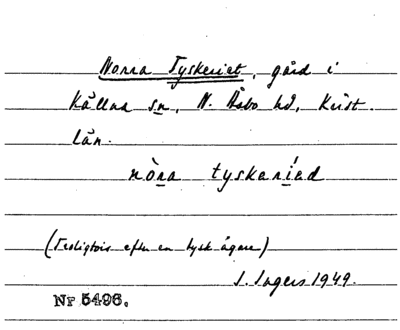 Norra Tyskeriet, gård i
Källna sn, N. Åsbo hd, Krist.
län.
nòra tyskaríad
(Troligtvis efter en tysk ägare)
S. Ingers 1949.
Nr 5496.